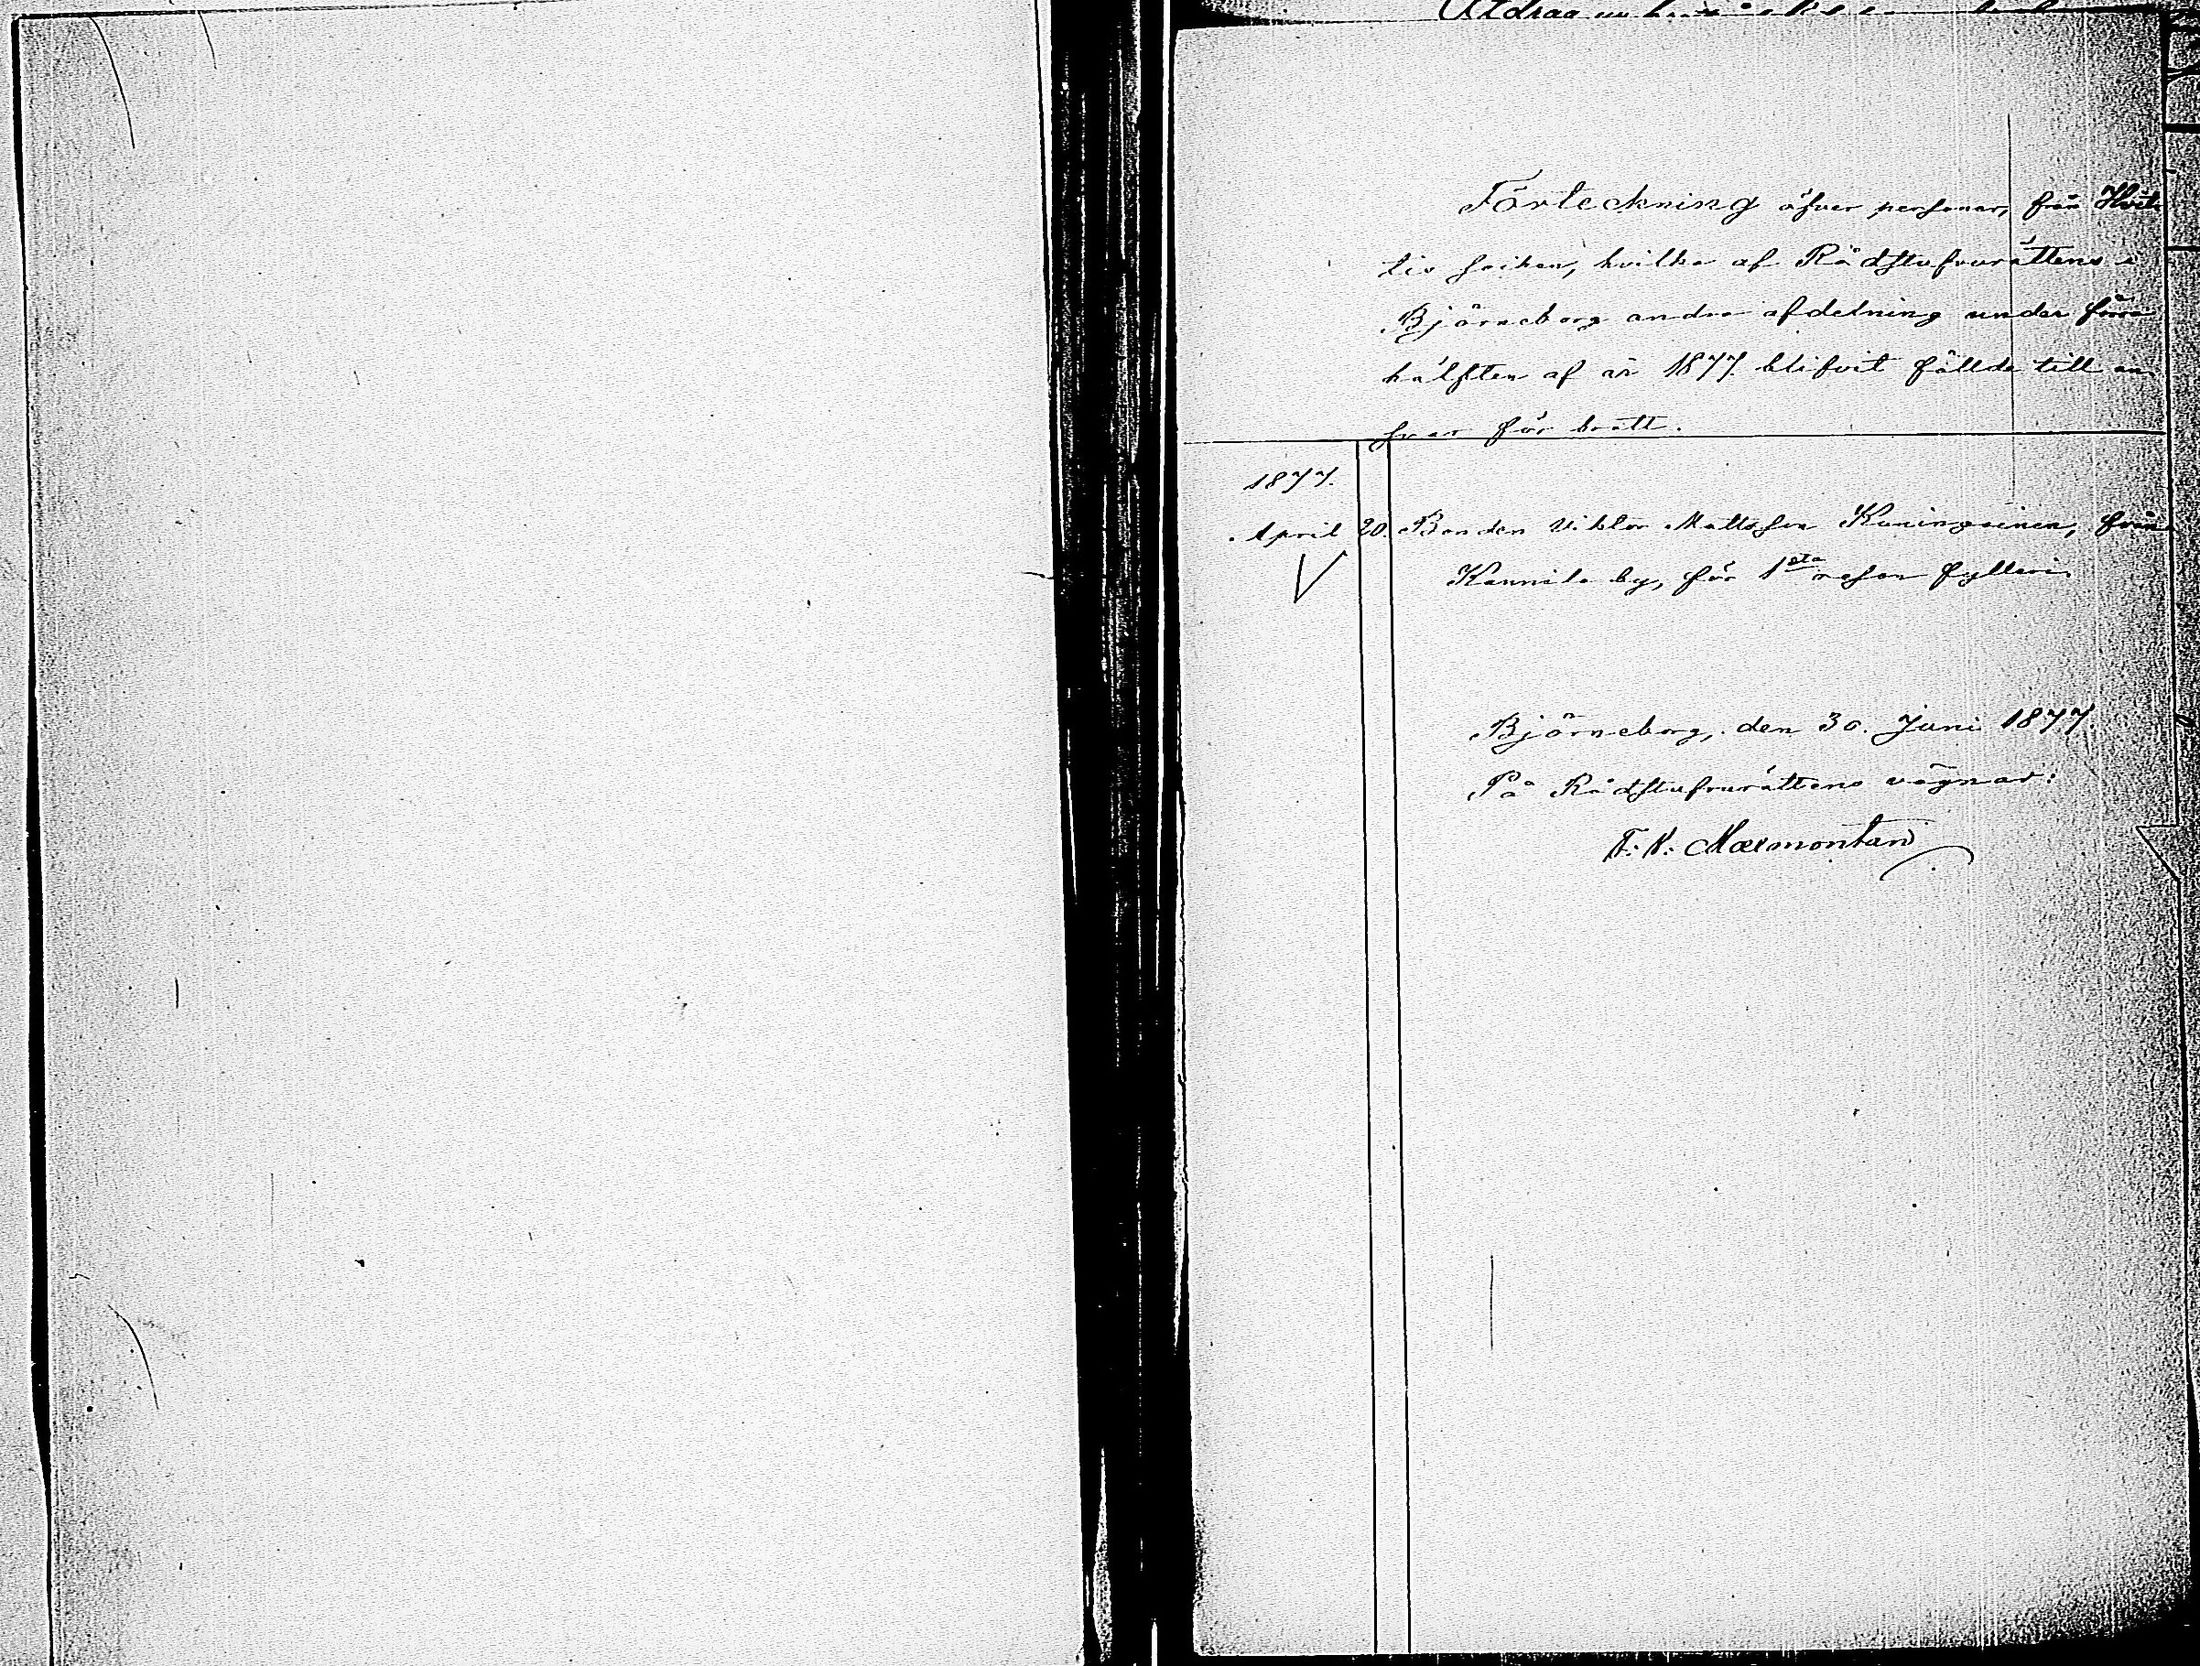 Utdrag
Förteckning öfver personer, från Hvit
tis socken, hvilka af Rådstufvurättens i
Björneborg andra afdelning under förra
hälften af år 1877 blifvit fällde till an
svar för brott.
1877.
April 20. Bonden Viktor Mattsson Kuningainen, från
Kannila by, för 1sta resan fylleri.
Björneborg, den 30. Juni 1877.
På Rådstufvurättens vägnar: